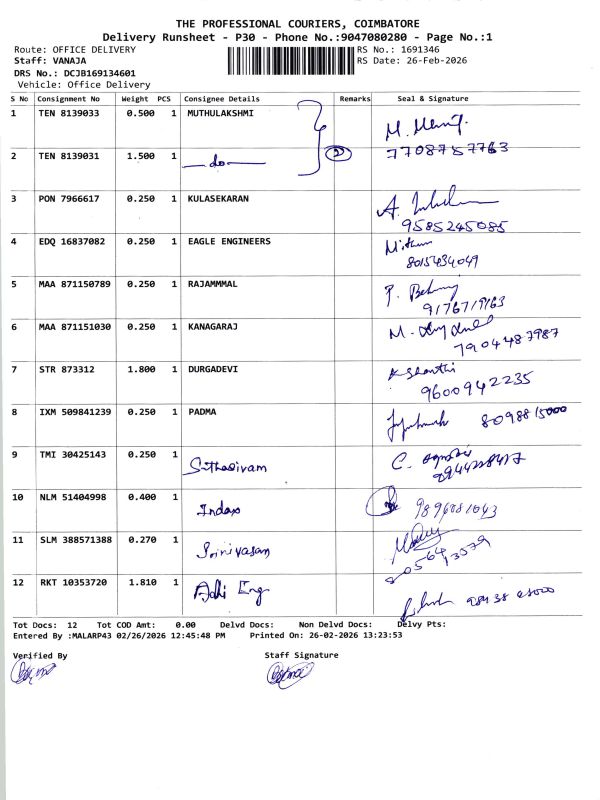 THE PROFESSIONAL COURIERS, COIMBATORE
Delivery Runsheet - P30 - Phone No.:9047080280 - Page No.:1
Route: OFFICE DELIVERY RS No.: 1691346
Staff: VANAJA RS Date: 26-Feb-2026
DRS No.: DCJB169134601
Vehicle: Office Delivery
S No Consignment No Weight PCS Consignee Details Remarks Seal & Signature
1 TEN 8139033 0.500 1 MUTHULAKSHMI
2 TEN 8139031 1.500 1 —do— 7708757763
3 PON 7966617 0.250 1 KULASEKARAN
9585245085
4 EDQ 16837082 0.250 1 EAGLE ENGINEERS Mithun
8015434049
5 MAA 871150789 0.250 1 RAJAMMMAL
6 MAA 871151030 0.250 1 KANAGARAJ
7904487987
7 STR 873312 1.800 1 DURGADEVI
9600942235
8 IXM 509841239 0.250 1 PADMA 8098815000
9 TMI 30425143 0.250 1 Sithasivam
10 NLM 51404998 0.400 1
11 SLM 388571388 0.270 1 Srinivasan
12 RKT 10353720 1.810 1 Adhi Eng
Tot Docs: 12 Tot COD Amt: 0.00 Delvd Docs: Non Delvd Docs: Delvy Pts:
Entered By :MALARP43 02/26/2026 12:45:48 PM Printed On: 26-02-2026 13:23:53
Verified By Staff Signature